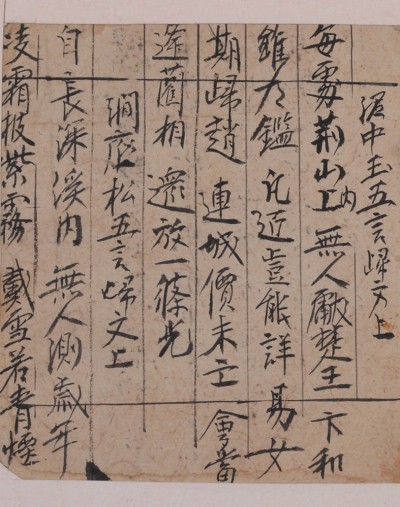 泥中玉五言歸文上
每處荊山上內無人獻楚王 卞和
雖有鑑 凡近豈能詳 易女
期歸趙 連城價未亡 會當
逢藺相 還放一條光
澗底松五言歸文上
自長深溪內 無人測歲年
凌霜披紫霧 戴雪若青煙